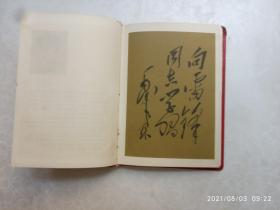 向雷锋
同志学习
毛泽东
2021/08/03 09:22